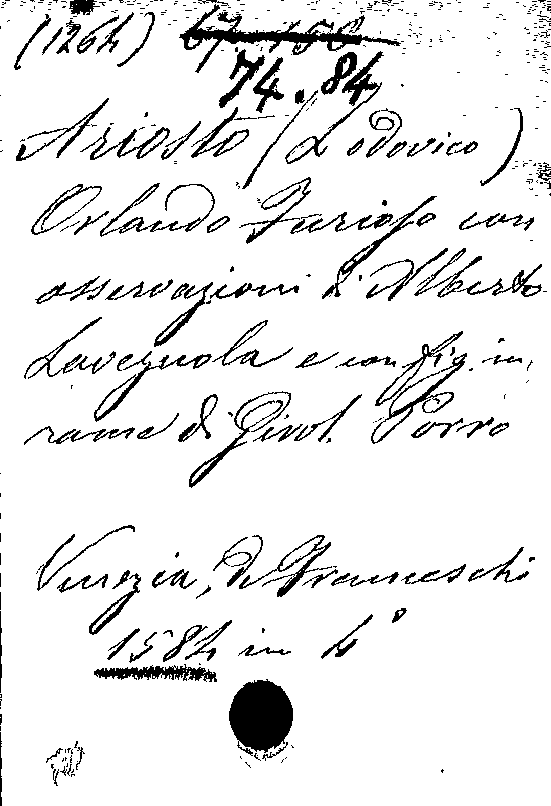 (1264) 67.150
74.84
Ariosto (Lodovico)
Orlando Furioso con
osservazioni di Alberto
Lavezuola e con fig. in
rame di Girol. Porro
Venezia, de Franceschi
1584 in 4°